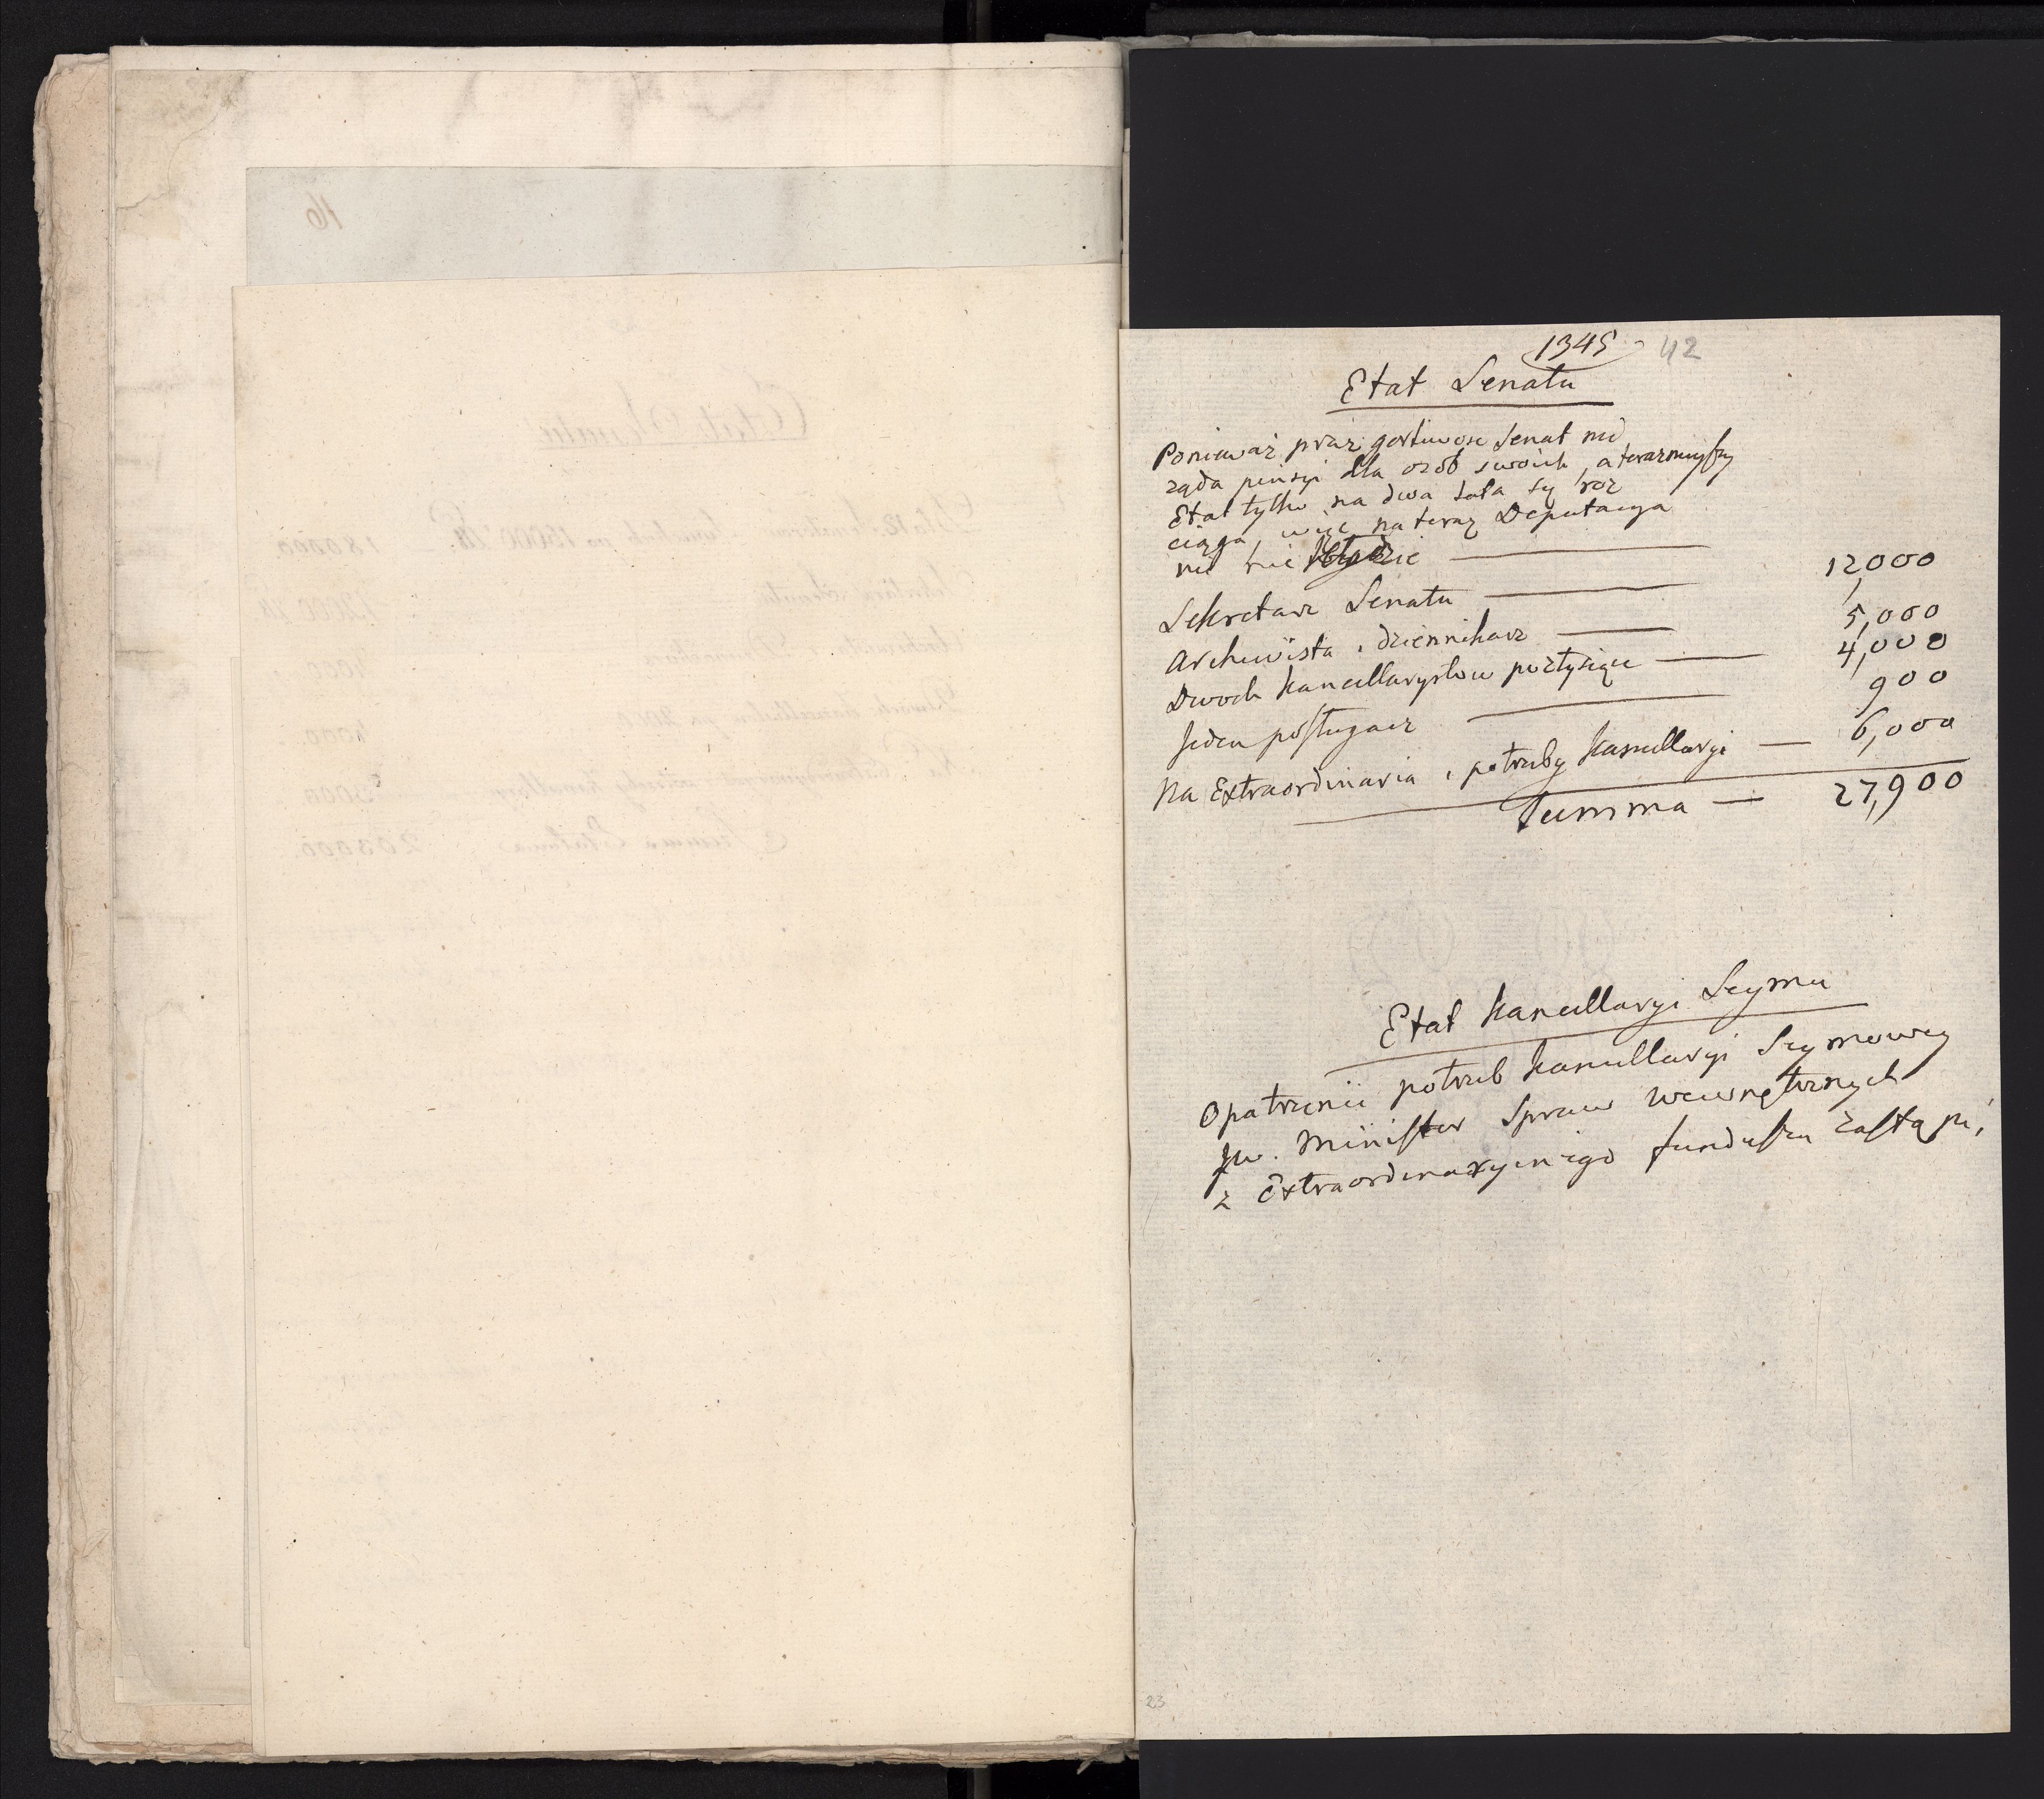 16
1345 42
Etat Senatu
Ponieważ przez gorliwosc Senat nie
ząda pensyi dla osób swoich, a teraznieyszy
Etat tylko na dwa lata się roz
ciąga, więc na teraz Deputacya
nic nie kładzie
Sekretarz Senatu — 12,000
Archiwista i dziennikarz — 5,000
Dwoch Kancellarystow po 2 tysiące — 4,000
Jeden posługacz — 900
Na Extraordinaria i potrzeby Kancellaryi — 6,000
Summa — 27,900
Etat Kancellaryi Seymu
Opatrzenie potrzeb Kancellaryi Seymowey
JW. Minister Spraw wewnętrznych
z Extraordynaryinego funduszu zastąpi,
23